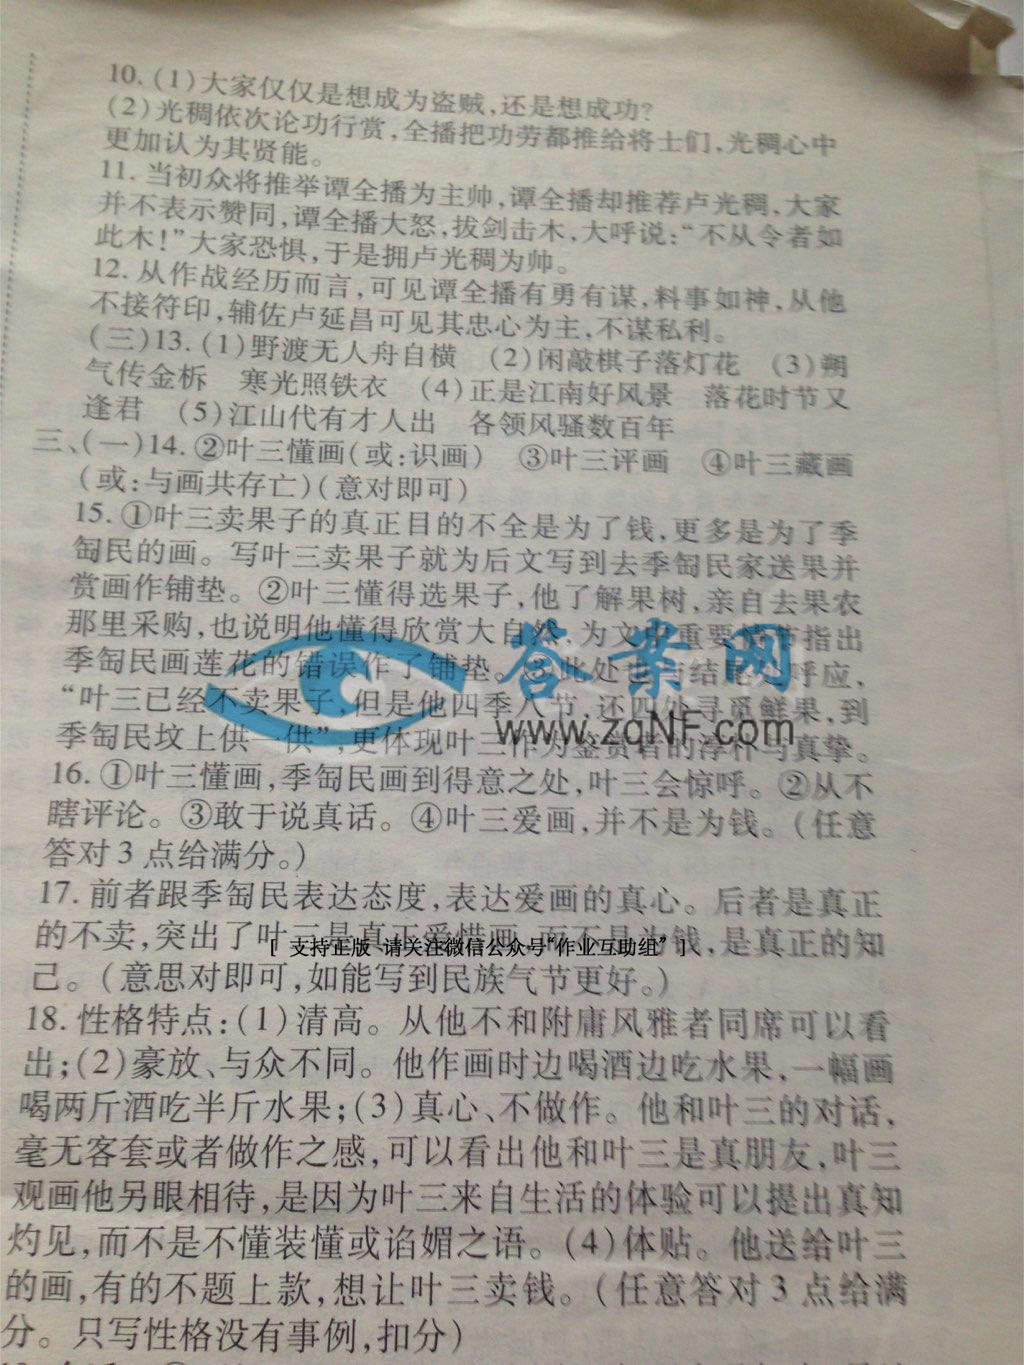 10. (1)大家仅仅是想成为盗贼,还是想成功?
(2)光稠依次论功行赏,全播把功劳都推给将士们,光稠心中
更加认为其贤能。
11. 当初众将推举谭全播为主帅,谭全播却推荐卢光稠,大家
并不表示赞同,谭全播大怒,拔剑击木,大呼说:“不从令者如
此木!”大家恐惧,于是拥卢光稠为帅。
12. 从作战经历而言,可见谭全播有勇有谋,料事如神,从他
不接符印,辅佐卢延昌可见其忠心为主,不谋私利。
(三)13. (1)野渡无人舟自横 (2)闲敲棋子落灯花 (3)朔
气传金柝 寒光照铁衣 (4)正是江南好风景 落花时节又
逢君 (5)江山代有才人出 各领风骚数百年
三、(一)14. ②叶三懂画(或:识画) ③叶三评画 ④叶三藏画
(或:与画共存亡)(意对即可)
15. ①叶三卖果子的真正目的不全是为了钱,更多是为了季
匋民的画。写叶三卖果子就为后文写到去季匋民家送果并
赏画作铺垫。②叶三懂得选果子,他了解果树,亲自去果农
那里采购,也说明他懂得欣赏大自然,为文中重要情节指出
季匋民画莲花的错误作了铺垫。③此处也与结尾处呼应,
“叶三已经不卖果子,但是他四季八节,还四处寻觅鲜果,到
季匋民坟上供一供”,更体现叶三作为鉴赏者的淳朴与真挚。
答案网
www.zqNF.com
16. ①叶三懂画,季匋民画到得意之处,叶三会惊呼。②从不
瞎评论。③敢于说真话。④叶三爱画,并不是为钱。(任意
答对3点给满分。)
17. 前者跟季匋民表达态度,表达爱画的真心。后者是真正
的不卖,突出了叶三是真正爱惜画,而不是为钱,是真正的知
[ 支持正版、请关注微信公众号“作业互助组” ]
己。(意思对即可,如能写到民族气节更好。)
18. 性格特点:(1)清高。从他不和附庸风雅者同席可以看
出;(2)豪放、与众不同。他作画时边喝酒边吃水果,一幅画
喝两斤酒吃半斤水果;(3)真心、不做作。他和叶三的对话,
毫无客套或者做作之感,可以看出他和叶三是真朋友,叶三
观画他另眼相待,是因为叶三来自生活的体验可以提出真知
灼见,而不是不懂装懂或谄媚之语。(4)体贴。他送给叶三
的画,有的不题上款,想让叶三卖钱。(任意答对3点给满
分。只写性格没有事例,扣分)